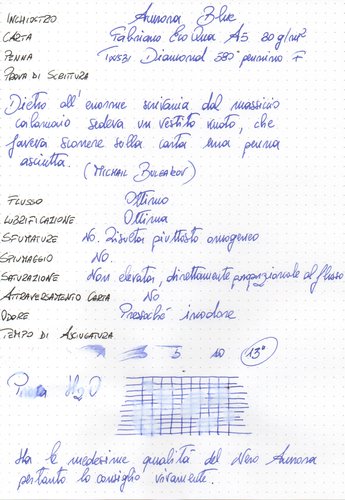 INCHIOSTRO Aurora Blue
CARTA Fabriano EcoQua A5 80 g/m²
PENNA TWSBI Diamond 580 pennino F
PROVA DI SCRITTURA
Dietro all'enorme scrivania dal massiccio
calamaio sedeva un vestito vuoto, che
faceva scorrere sulla carta una penna
asciutta.
(MICHAIL BULGAKOV)
FLUSSO Ottimo
LUBRIFICAZIONE Ottima
SFUMATURE No. Risulta piuttosto omogeneo
SPIUMAGGIO No.
SATURAZIONE Non elevata, direttamente proporzionale al flusso
ATTRAVERSAMENTO CARTA No
ODORE Pressoché inodore
TEMPO DI ASCIUGATURA
5 10 13"
Prova H2O
Ha le medesime qualità del Nero Aurora
pertanto lo consiglio vivamente.